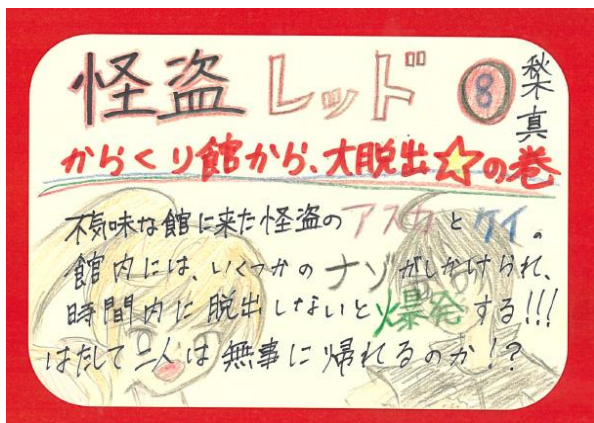 怪盗レッド⑧
秋木真
からくり館から、大脱出☆の巻
不気味な館に来た怪盗のアスカとケイ。
館内には、いくつかのナゾがしかけられ、
時間内に脱出しないと爆発する!!!
はたして二人は無事に帰れるのか!?